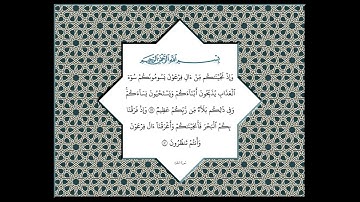 بِسْمِ اللَّهِ الرَّحْمَٰنِ الرَّحِيمِ
وَإِذْ نَجَّيْنَٰكُم مِّنْ ءَالِ فِرْعَوْنَ يَسُومُونَكُمْ سُوٓءَ
ٱلْعَذَابِ يُذَبِّحُونَ أَبْنَآءَكُمْ وَيَسْتَحْيُونَ نِسَآءَكُمْ
وَفِى ذَٰلِكُم بَلَآءٌ مِّن رَّبِّكُمْ عَظِيمٌ وَإِذْ فَرَقْنَا
بِكُمُ ٱلْبَحْرَ فَأَنجَيْنَٰكُمْ وَأَغْرَقْنَآ ءَالَ فِرْعَوْنَ
وَأَنتُمْ تَنظُرُونَ